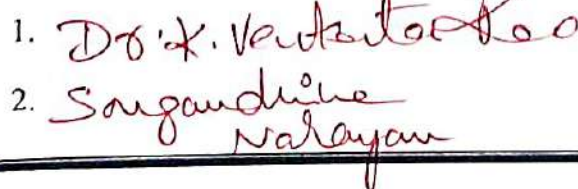 1. Dr. K. Venkata Rao
2. Sougandhine
Narayan